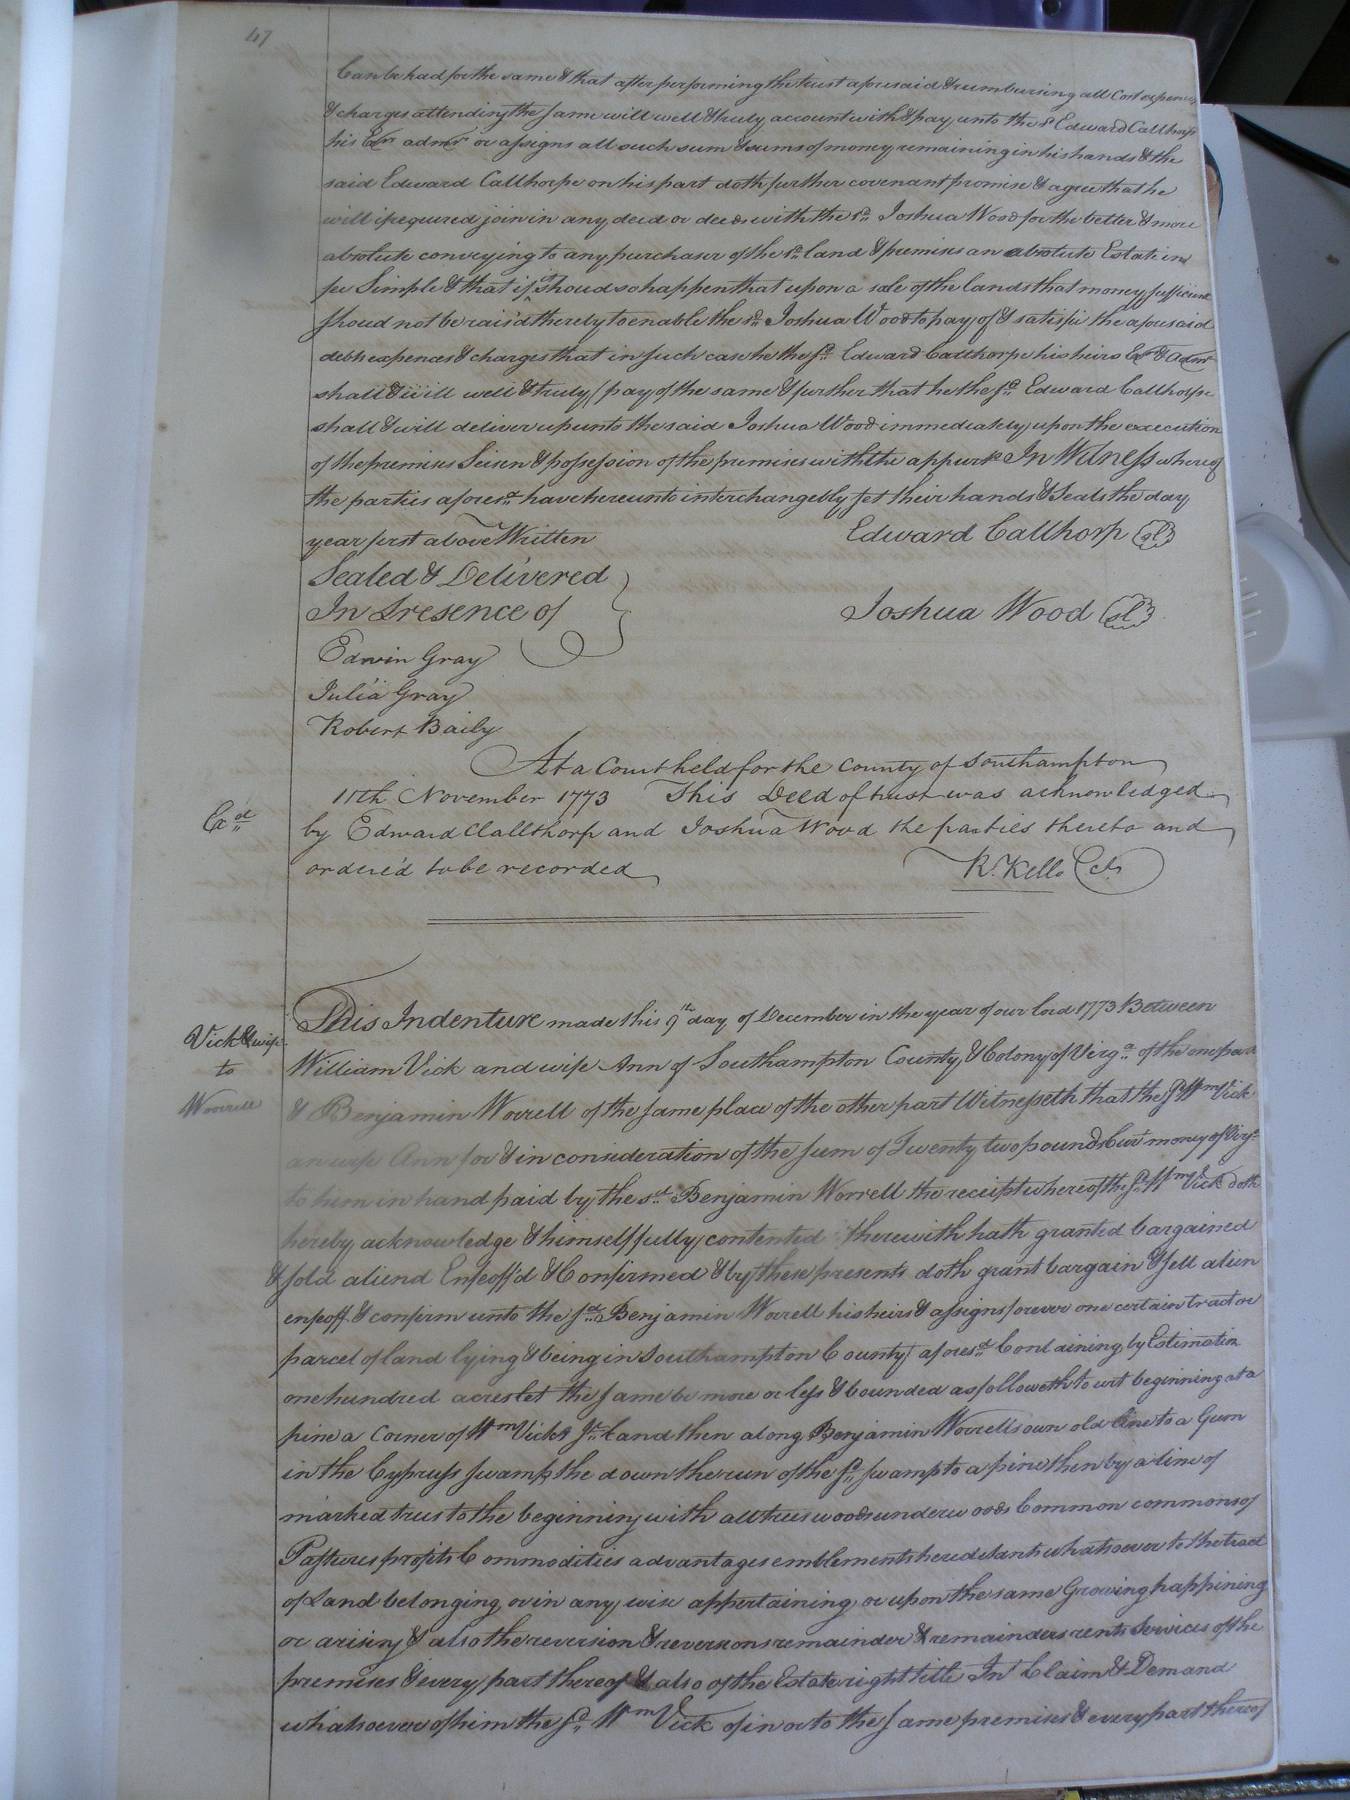 47
Can be had for the same & that after performing the trust aforesaid & reimbursing all Cost expences
& charges attending the same will well & truly account with & pay unto the sd Edward Callthorp
his Exr admr or assigns all such sum & sums of money remaining in his hands & the
said Edward Callhorpe on his part doth further covenant promise & agree that he
will if required join in any deed or deeds with the sd Joshua Wood for the better & more
absolute conveying to any purchaser of the sd land & premises an absolute Estate in
fee Simple & that if it shoud so happen that upon a sale of the lands that money sufficient
shoud not be rais'd thereby to enable the sd Joshua Wood to pay of & satisfie the aforesaid
debts expences & charges that in such case he the sd Edward Callthorpe his heirs Exr & Admr
shall & will well & truly pay of the same & further that he the sd Edward Callthorpe
shall & will deliver up unto the said Joshua Wood immediately upon the execution
of the premises Seisen & possession of the premises with the appurts In Witness whereof
the parties aforesd have hereunto interchangebly set their hands & Seals the day
year first above Written Edward Callthorp sl
Sealed & Delivered
In Presence of Joshua Wood sl
Edwin Gray
Julia Gray
Robert Baily
At a Court held for the County of Southampton
11th November 1773 This Deed of trust was acknowledged
Exd
by Edward Callthorp and Joshua Wood the parties thereto and
order'd to be recorded R. Kello Cl
This Indenture made this 9th day of December in the year of our lord 1773 Between
Vick & wife
to
Worrell
William Vick and wife Ann of Southampton County & Colony of Virga of the one part
& Benjamin Worrell of the same place of the other part Witnesseth that the sd Wm Vick
an wife Ann for & in consideration of the sum of Twenty two pounds Curt money of Virga
to him in hand paid by the sd Benjamin Worrell the receipt whereof the sd Wm Vick doth
hereby acknowledge & himself fully contented therewith hath granted bargained
& sold aliend Enfeoff'd & Confirmed & by these presents doth grant bargain & sell alien
enfeoff & confirm unto the sd Benjamin Worrell his heirs & assigns forever one certain tract or
parcel of land lying & being in Southampton County aforesd Containing by Estimation
one hundred acres let the same be more or less & bounded as followeth to wit beginning at a
pine a Corner of Wm Vicks Jr land then along Benjamin Worrells own old line to a Gum
in the Cypruss swamp the down the run of the sd swamp to a pine then by a line of
marked trees to the beginning with all trees woods underwoods Common commons of
Pastures profits Commodities advantages emblements hereditants whatsoever to the tract
of Land belonging or in any wise appertaining or upon the same Growing happining
or arising & also the reversion & reversons remainder & remainders rents Services of the
premises & every part thereof & also of the Estate right title Int Claim & Demand
whatsoever of him the sd Wm Vick of in or to the same premises & every part thereof